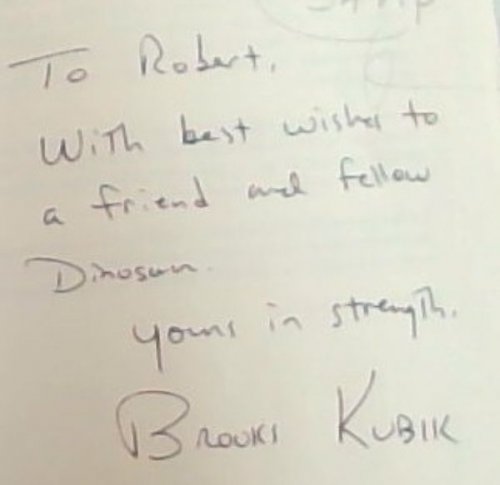 To Robert,
With best wishes to
a friend and fellow
Dinosaur.
yours in strength.
Brooks Kubik